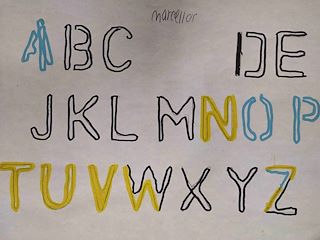 marcellor
A B C D E
J K L M N O P
T U V W X Y Z